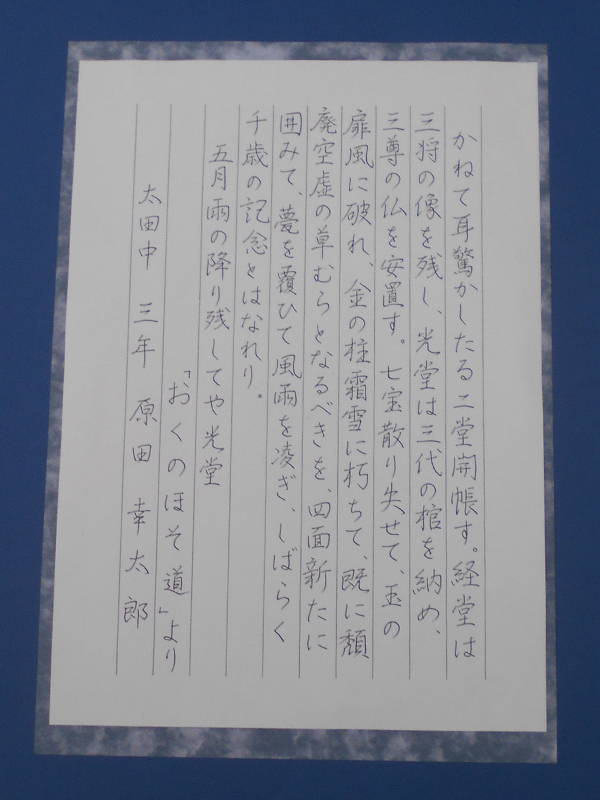 かねて耳驚かしたる二堂開帳す。経堂は
三将の像を残し、光堂は三代の棺を納め、
三尊の仏を安置す。七宝散り失せて、玉の
扉風に破れ、金の柱霜雪に朽ちて、既に頽
廃空虚の草むらとなるべきを、四面新たに
囲みて、甍を覆ひて風雨を凌ぎ、しばらく
千歳の記念とはなれり。
五月雨の降り残してや光堂
「おくのほそ道」より
太田中 三年 原田 幸太郎